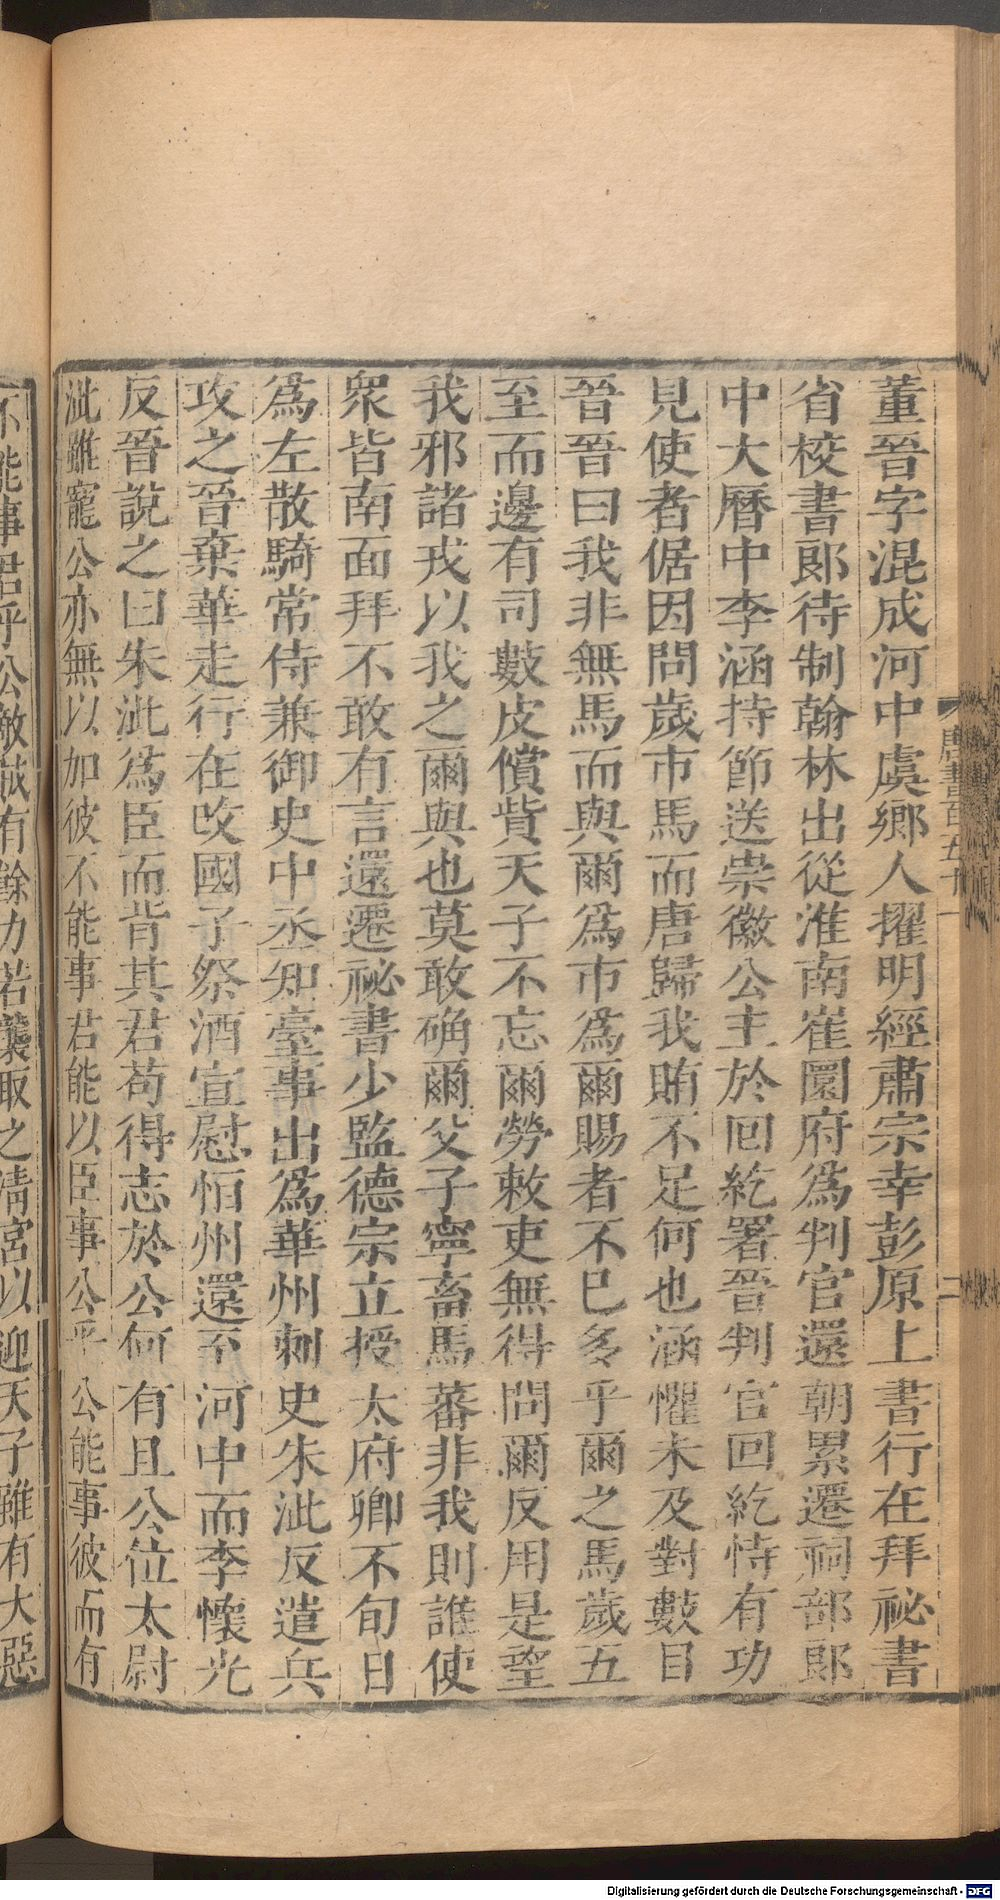 董晉字混成河中虞鄉人擢明經肅宗幸彭原上書行在拜祕書
省校書郎待制翰林出從淮南崔圓府爲判官還朝累遷祠部郎
中大曆中李涵持節送崇徽公主於回紇署晉判官回紇恃有功
見使者倨因問歲市馬而唐歸我賄不足何也涵懼未及對數目
晉晉曰我非無馬而與爾爲市爲爾賜者不已多乎爾之馬歲五
至而邊有司數皮償貲天子不忘爾勞敕吏無得問爾反用是望
我邪諸戎以我之爾與也莫敢确爾父子寧畜馬蕃非我則誰使
衆皆南面拜不敢有言還遷祕書少監德宗立授太府卿不旬日
爲左散騎常侍兼御史中丞知臺事出爲華州刺史朱泚反遣兵
攻之晉棄華走行在改國子祭酒宣慰恒州還至河中而李懷光
反晉說之曰朱泚爲臣而背其君苟得志於公何有且公位太尉
泚雖寵公亦無以加彼不能事君能以臣事公乎公能事彼而有
不能事君乎公敵賊有餘力若襲取之清宮以迎天子雖有大惡
唐書百五十一
二
Digitalisierung gefördert durch die Deutsche Forschungsgemeinschaft - DFG